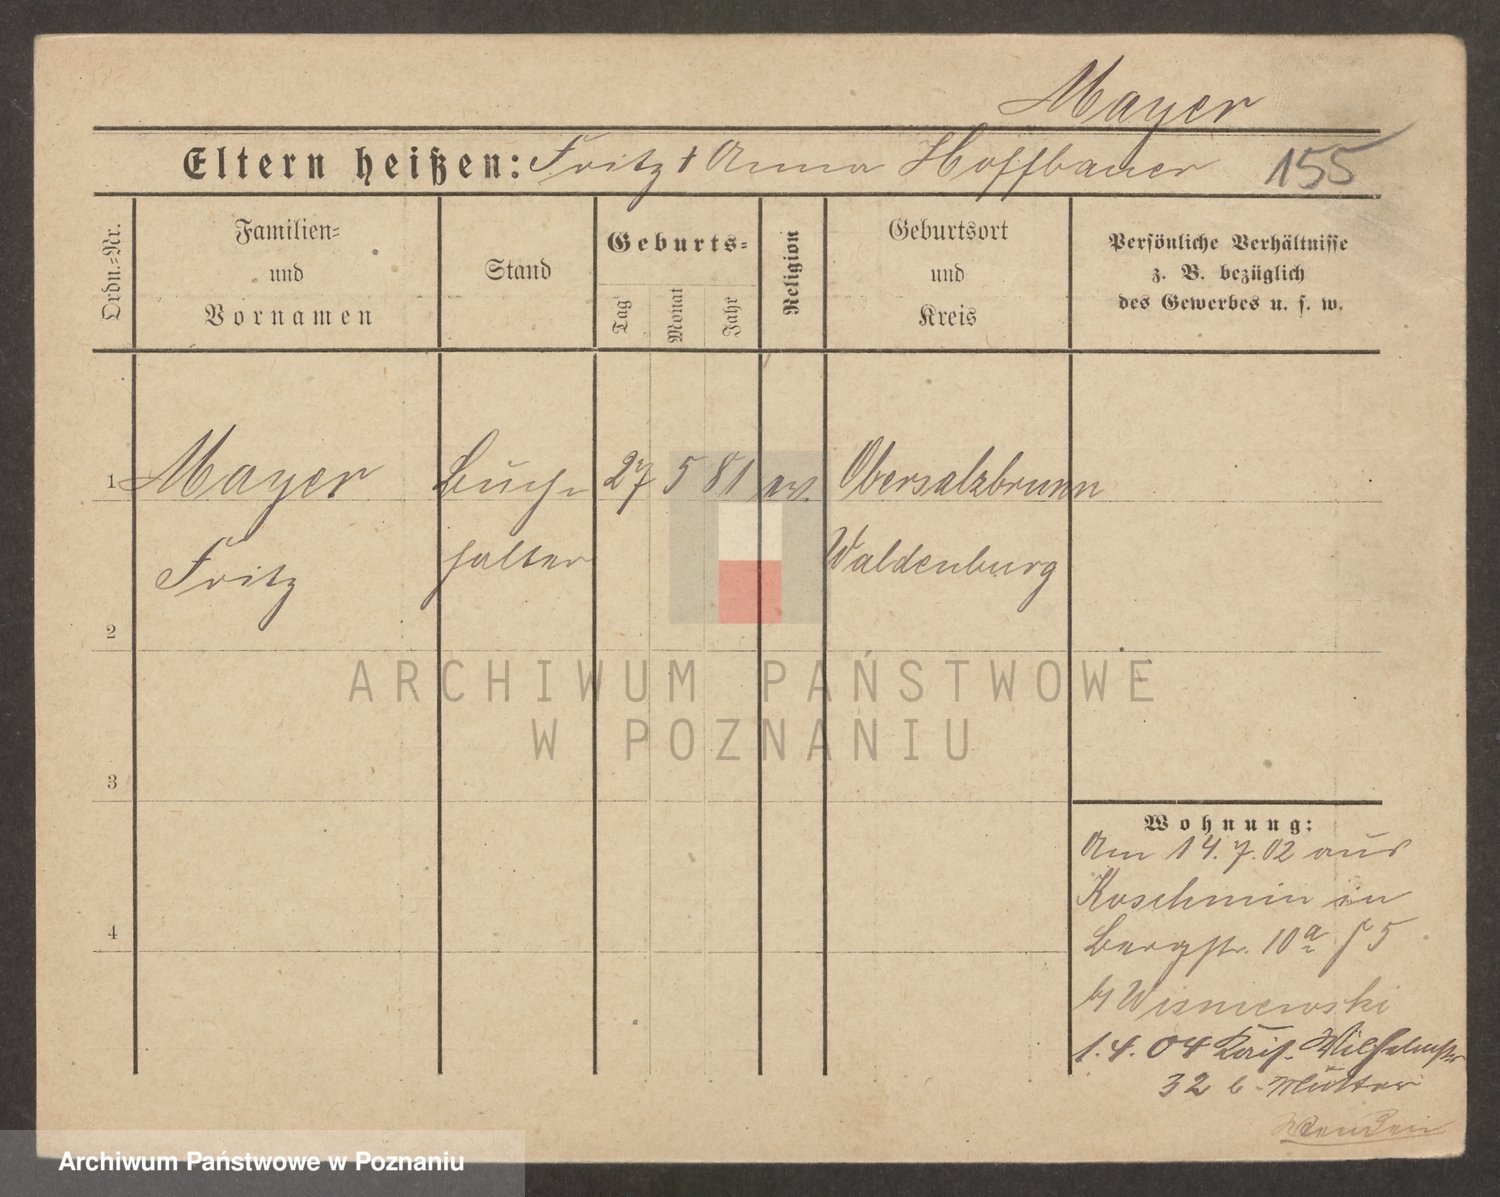 Mayer
Eltern heißen: Fritz † Anna Hoffbauer 155
Ordn.=Nr.
Familien=
und
Vornamen
Stand
Geburts=
Tag
Monat
Jahr
Religion
Geburtsort
und
Kreis
Persönliche Verhältnisse
z. B. bezüglich
des Gewerbes u. s. w.
1 Mayer Buch= 27 5 81 ev. Obersalzbrunn
Fritz halter Waldenburg
2
ARCHIWUM PAŃSTWOWE
W POZNANIU
3
Wohnung:
Am 14.7.02 aus
Koschmin in
4
Bergstr. 10a 5
b/ Wisniewski
1.4.04 Kais. Wilhelmstr
32 b. Mutter
Wenden
Archiwum Państwowe w Poznaniu